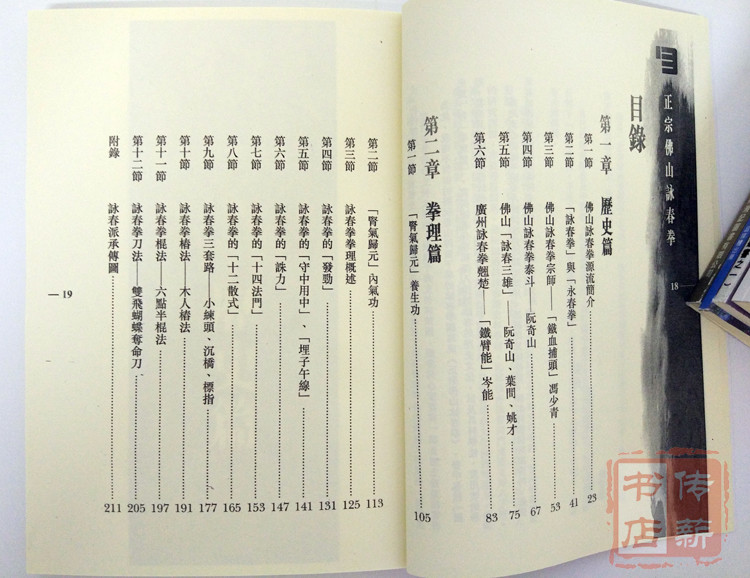 正宗佛山詠春拳
18
目錄
第一章 歷史篇
第一節 佛山詠春拳源流簡介 23
第二節 「詠春拳」與「永春拳」 41
第三節 佛山詠春拳宗師——「鐵血捕頭」馮少青 53
第四節 佛山詠春拳泰斗——阮奇山 67
第五節 佛山「詠春三雄」——阮奇山、葉問、姚才 75
第六節 廣州詠春拳翹楚——「鐵臂能」岑能 83
第二章 拳理篇
第一節 「腎氣歸元」養生功 105
第二節 「腎氣歸元」內氣功 113
第三節 詠春拳拳理概述 125
第四節 詠春拳的「發勁」 131
第五節 詠春拳的「守中用中」、「埋子午線」 141
第六節 詠春拳的「誅力」 147
第七節 詠春拳的「十四法門」 153
第八節 詠春拳的「十二散式」 165
第九節 詠春拳三套路——小練頭、沉橋、標指 177
第十節 詠春拳樁法——木人樁法 191
第十一節 詠春拳棍法——六點半棍法 197
第十二節 詠春拳刀法——雙飛蝴蝶奪命刀 205
附錄 詠春派承傳圖 211
19
传新
书店